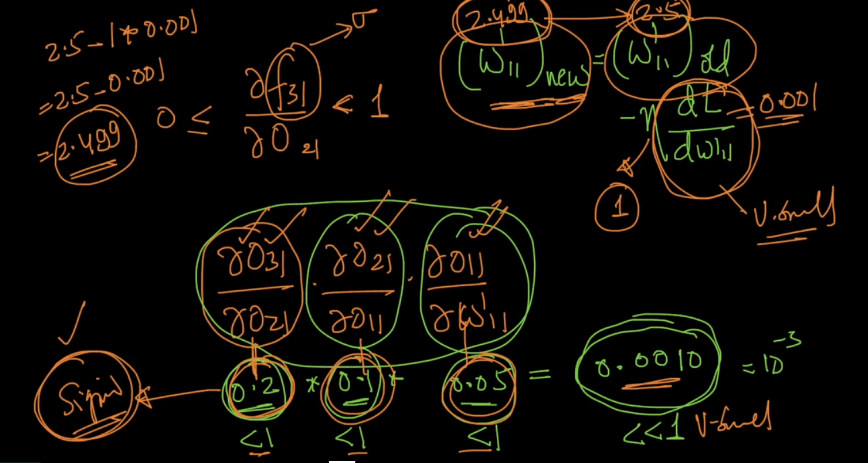 2.5 - 1 * 0.001
= 2.5 - 0.001
= 2.499
0 ≤ ∂f31 / ∂O21 < 1
σ
2.499 → 2.5
(W'11)new = (W'11)old
- η dL / dW'11 = 0.001
1
V. Small
∂O31 / ∂O21 . ∂O21 / ∂O11 . ∂O11 / ∂W'11
0.2 * 0.1 * 0.05 = 0.0010 = 10^-3
<1 <1 <1 <<1 V-Small